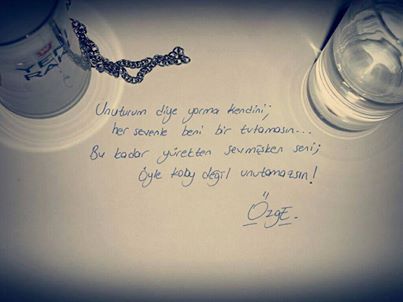 Unuturum diye yorma kendini;
her sevenle beni bir tutamasın...
Bu kadar yürekten sevmişken seni;
Öyle kolay değil unutamazsın!
ÖzgE.